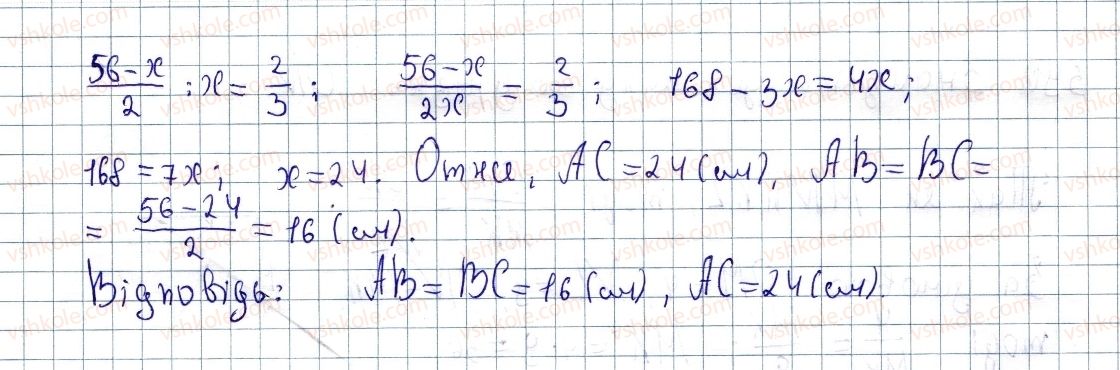 (56-x)/2 : x = 2/3; (56-x)/2x = 2/3; 168 - 3x = 4x;
168 = 7x; x = 24. Отже, AC = 24 (см), AB = BC =
= (56-24)/2 = 16 (см).
Відповідь: AB = BC = 16 (см), AC = 24 (см).